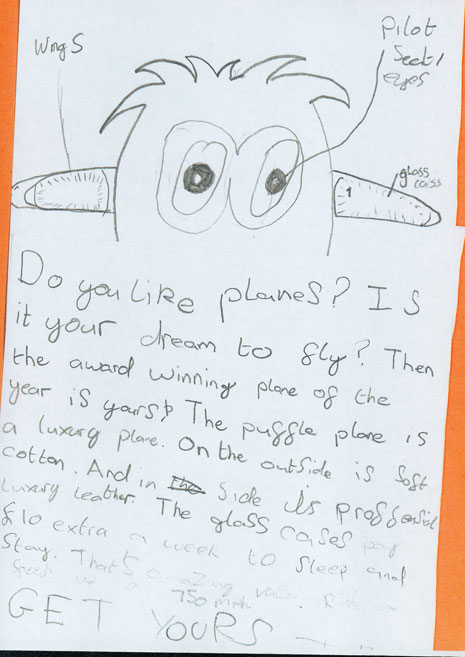 Wings
Pilot
Seat/
eyes
glass
caiss
1
Do you Like planes? Is
it your dream to fly? Then
the award winning plane of the
year is yours! The puggle plane is
a luxury plane. On the outside is soft
cotton. And in side its proffesial
Luxury Leather. The glass cases pay
£10 extra a week to sleep and
Stay. That's amazing value.
speeds up to 750 mph
GET YOURS